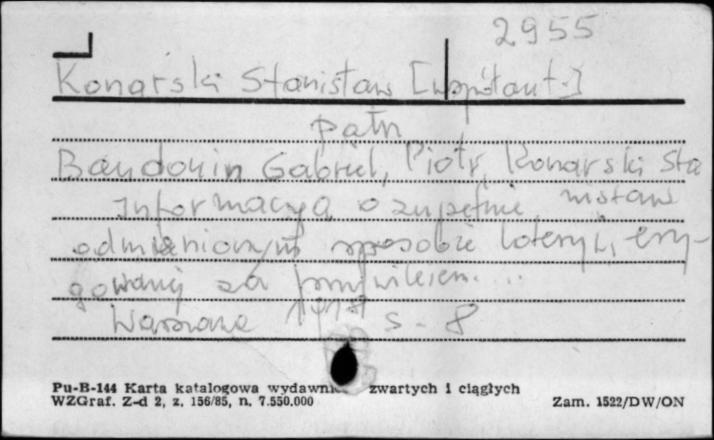 2955
Konarski Stanisław [współaut.]
patrz
Baudouin Gabriel, Piotr, Konarski Sta
nisław
Informacya o zupełnie
odmienionym sposobie loteryi, ery-
gowanej za przywilejem....
Warszawa s. 8
Pu-B-144 Karta katalogowa wydawni zwartych i ciągłych
WZGraf. Z-d 2, z. 156/85, n. 7.550.000
Zam. 1522/DW/ON